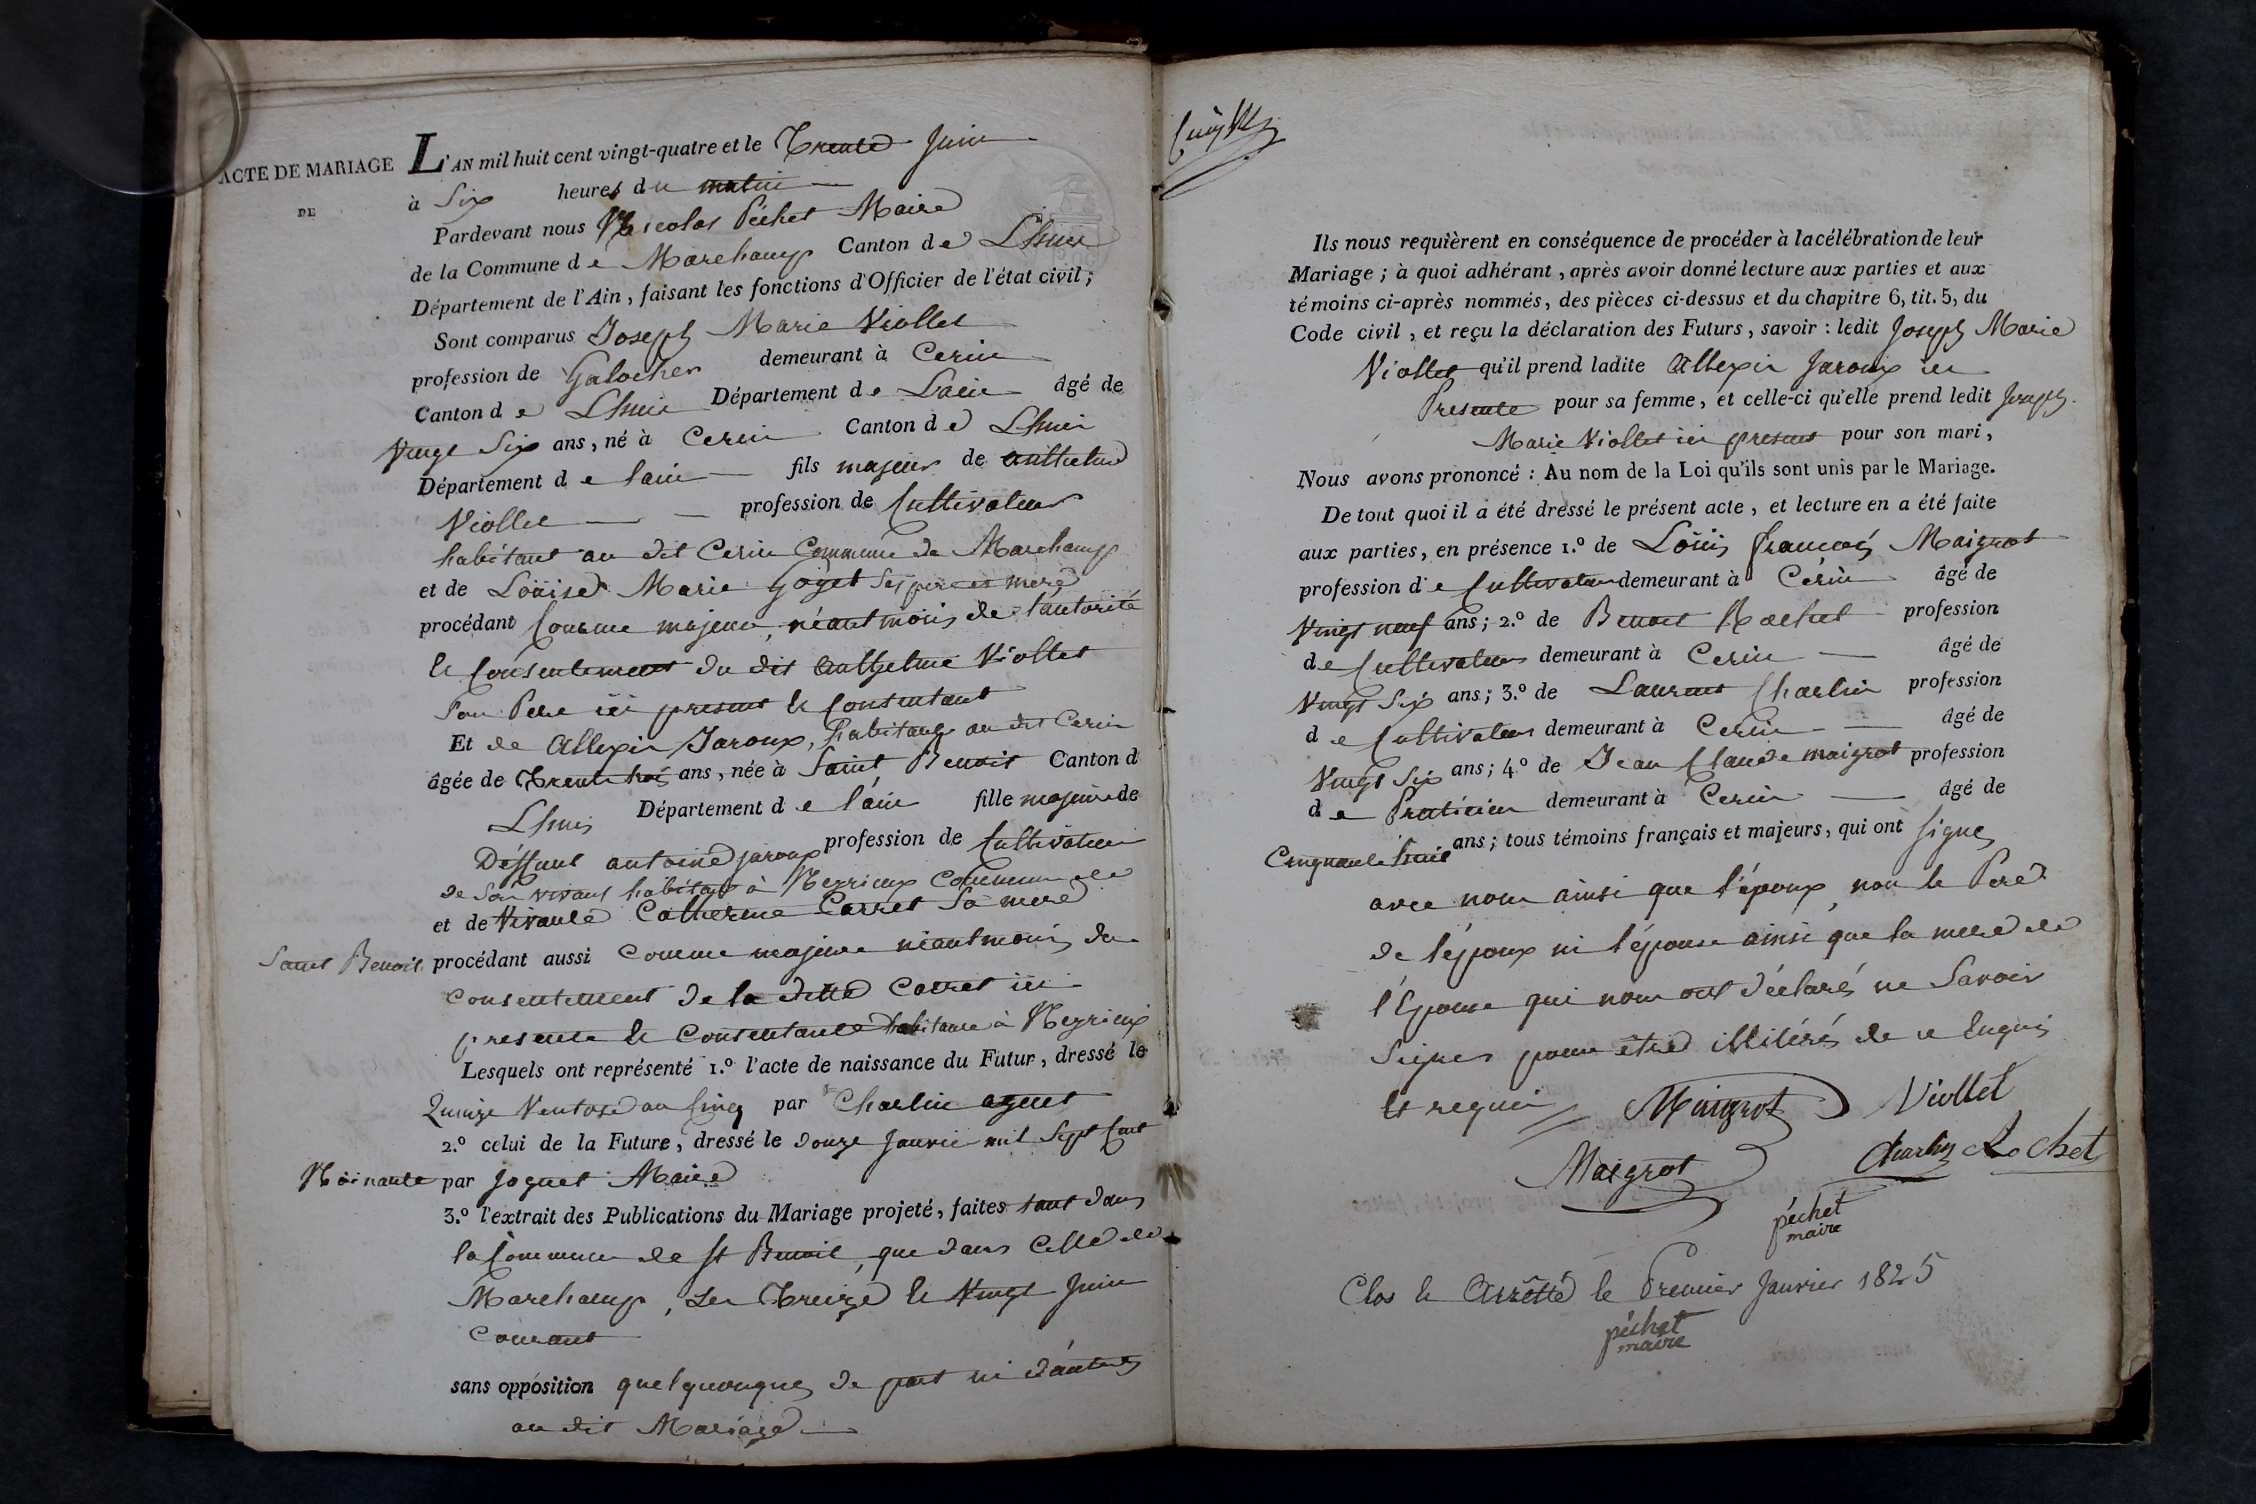 ACTE DE MARIAGE
DE
L'AN mil huit cent vingt-quatre et le Trente Juin
à Six heures du matin
Pardevant nous Nicolas Péchet Maire
de la Commune de Marchamp Canton de Lhuis
Département de l'Ain, faisant les fonctions d'Officier de l'état civil;
Sont comparus Joseph Marie Viollet
profession de Galocher demeurant à Cerin
Canton de Lhuis Département de Lain âgé de
Vingt Six ans, né à Cerin Canton de Lhuis
Département de lain fils majeur de anthelme
Viollet profession de Cultivateur
habitant au dit Cerin Commune de Marchamp
et de Loüise Marie Goget Ses pere et mere
procédant Comme majeur, néantmoins de l'autorité
et Consentement du dit anthelme Viollet
Son Pere ici present et Consentant
Et de Allexin Jaroux, habitante au dit Cerin
âgée de Trente trois ans, née à Saint Benoit Canton d
Lhuis Département de l'ain fille majeure de
Déffunt antoine jaroux profession de Cultivateur
de Son vivant habitant à Neyrieux Commune de
et de Vivante Catherine Carret Sa mere
Saint Benoit procédant aussi Comme majeure néantmoins du
Consentement de la ditte Carret ici
presente et Consentante habitante à Neyrieux
Lesquels ont représenté 1.º l'acte de naissance du Futur, dressé le
Quinze Ventose an Cinq par Charlin agent
2.º celui de la Future, dressé le Douze Janvier mil Sept Cent
Nonante par Joguet Maire
3.º l'extrait des Publications du Mariage projeté, faites tant dans
la Commune de St Benoit, que dans Celle de
Marchamp, Les Treize et Vingt Juin
Courant
sans opposition quelquonques de part ni d'autres
au dit Mariage
Ils nous requièrent en conséquence de procéder à la célébration de leur
Mariage; à quoi adhérant, après avoir donné lecture aux parties et aux
témoins ci-après nommés, des pièces ci-dessus et du chapitre 6, tit. 5, du
Code civil, et reçu la déclaration des Futurs, savoir: ledit Joseph Marie
Viollet qu'il prend ladite Allexin Jaroux ici
Presente pour sa femme, et celle-ci qu'elle prend ledit Joseph
Marie Viollet ici present pour son mari,
Nous avons prononcé: Au nom de la Loi qu'ils sont unis par le Mariage.
De tout quoi il a été dressé le présent acte, et lecture en a été faite
aux parties, en présence 1.º de Loüis françois Maigrot
profession de Cultivateur demeurant à Cérin âgé de
Vingt neuf ans; 2.º de Benoit Rochet profession
de Cultivateur demeurant à Cerin âgé de
Vingt Six ans; 3.º de Laurent Charlin profession
de Cultivateur demeurant à Cerin âgé de
Vingt Six ans; 4.º de Jean Claude maigrot profession
de Praticien demeurant à Cerin âgé de
Cinquante huit ans; tous témoins français et majeurs, qui ont Signe
avec nous ainsi que l'époux, non le Pere
de l'époux ni l'épouse ainsi que la mere de
l'Epouse qui nous ont déclarés ne Savoir
Signer pour être illitérés de ce Enquis
Et requis Maigrot Viollet
Maigrot Charlin Rochet
péchet
maire
Clos et Arrêtté le Premier Janvier 1825
péchet
maire